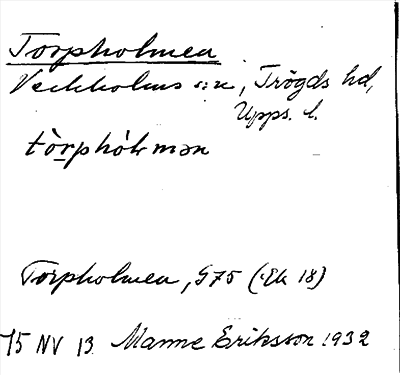 Torpholmen
Veckholms s:n, Trögds hd,
Upps. l.
tòrphól·mən
Torpholmen, G75 (Ek 18)
75 NV 13 Manne Eriksson 1932